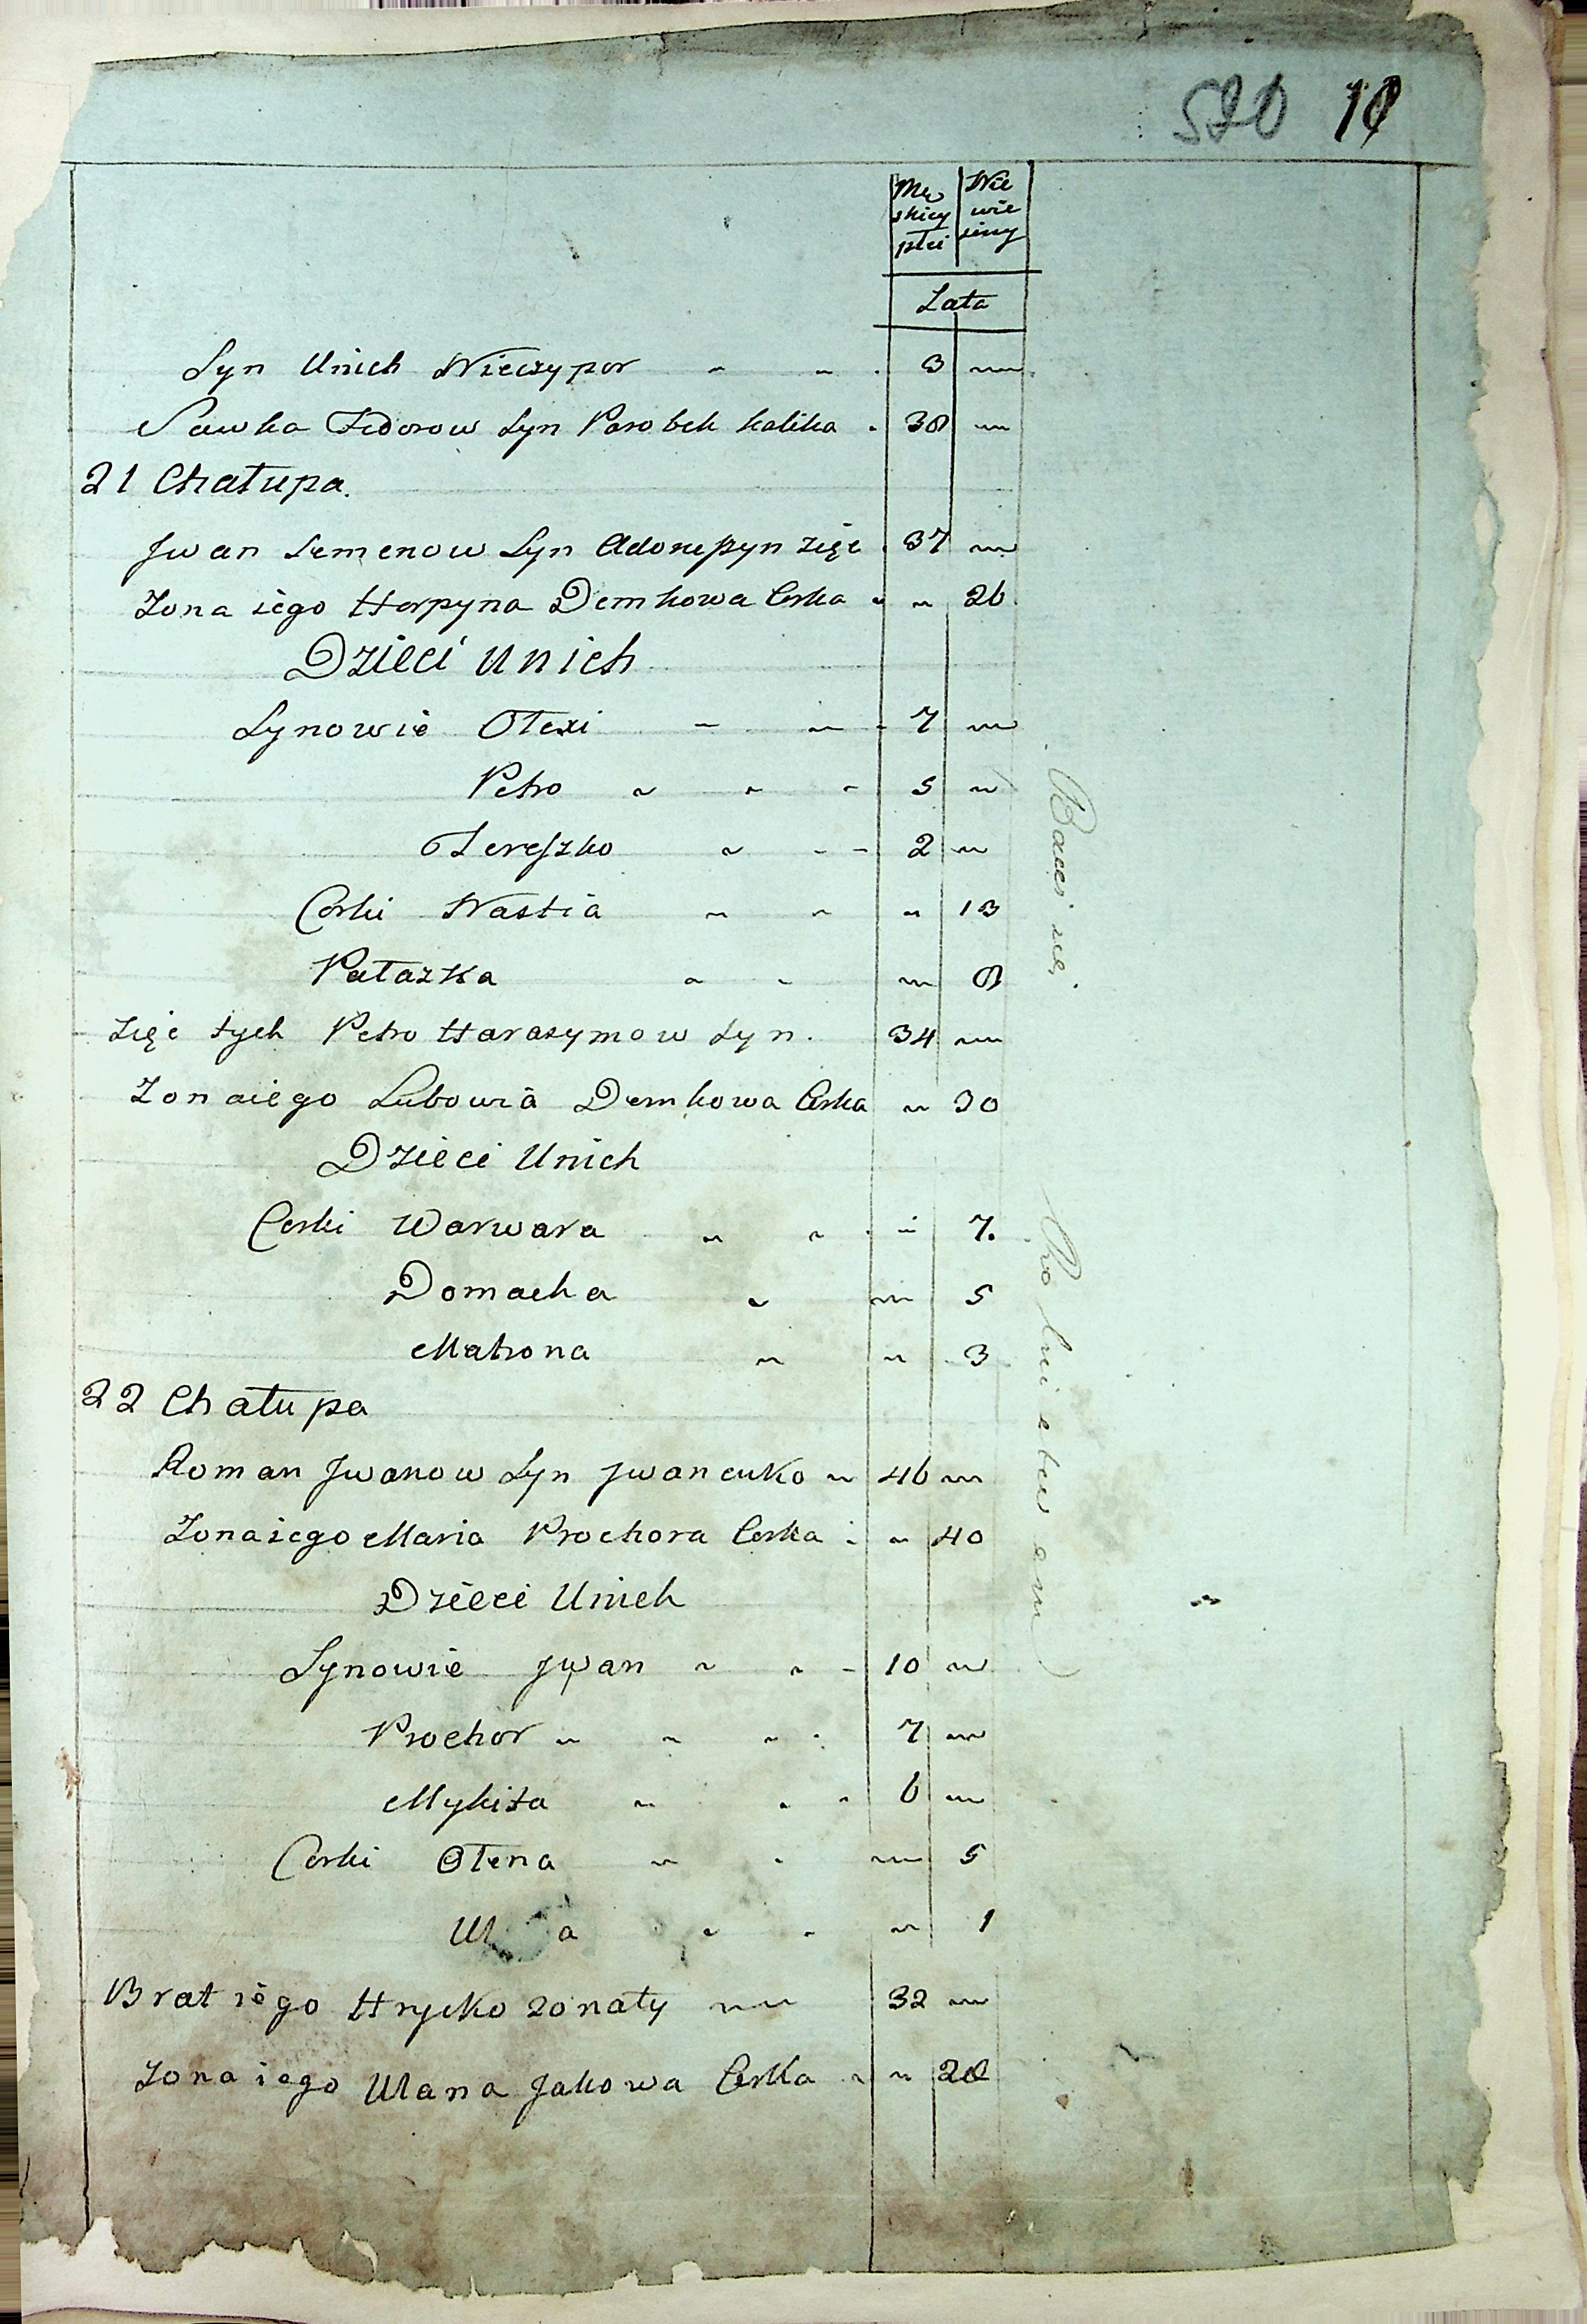 520 10
Mę Nie
skiey wie
płci sciey
Lata
Syn Unich Nieczypor " " . 3 "
Sawka Fedorow Syn Parobek kalika . 38 "
21 Chałupa.
Jwan Semenow Syn zięc . 37 "
Zona iego Horpyna Demkowa Corka " " 26
Dzieci Unich
Synowie Ołexi - " - 7 "
Petro " " - 5 "
Tereszko " - - 2 "
Corki Nastia " " " 13
Pałazka " - " 8
Zięc tych Petro Harasymow Syn. 34 "
Zona iego Lubowia Demkowa Corka " 30
Dzieci Unich
Corki Warwara " " . " 7.
Domacha " " 5
Matrona " " 3
22 Chałupa
Roman Jwanow Syn Jwanenko " 46 "
Zona iego Maria Prochora Corka : " 40
Dzieci Unich
Synowie Jwan " " - 10 "
Prochor " " " . 7 "
Mykita " . " 6 "
Corki Ołena " . " 5
" . " 1
Brat iego Hrycko zonaty " " 32 "
Zona iego Ulana Jakowa Corka " " 28